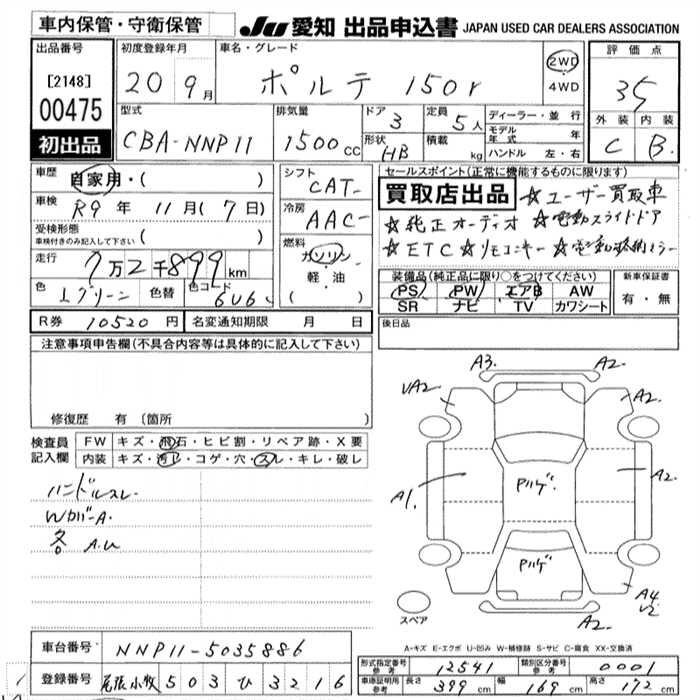 車内保管・守衛保管 JU 愛知 出品申込書 JAPAN USED CAR DEALERS ASSOCIATION
出品番号 [2148] 00475 初出品
初度登録年月 20 9月
車名・グレード ポルテ 150r
2WD 4WD
評価点 3.5
外装 内装 C B
型式 CBA-NNP11
排気量 1500 cc
ドア 3 定員 5人
形状 HB 積載 kg
ディーラー・並行
モデル年式 年
ハンドル 左・右
車歴 自家用・( )
車検 R9年 11月(7日)
受検形態 車検付きのみ記入して下さい ( )
走行 7万2千899km
色 Lグリーン 色替 色コード 6U6
シフト CAT
冷房 AAC
燃料 ガソリン 軽・油 ( )
セールスポイント(正常に機能するものに限ります)
買取店出品 ☆ユーザー買取車
☆純正オーディオ ☆電動スライドドア
☆ETC ☆リモコンキー ☆電動格納ミラー
装備品(純正品に限り○をつけてください)
PS PW エアB AW
SR ナビ TV カワシート
新車保証書 有・無
後日品
R券 10520円 名変通知期限 月 日
注意事項申告欄(不具合内容等は具体的に記入して下さい)
修復歴 有 〔箇所 〕
検査員記入欄
FW キズ・飛石・ヒビ割・リペア跡・X要
内装 キズ・汚れ・コゲ・穴・スレ・キレ・破レ
ハンドルスレ
Wカバー A.
各 A.U
A3. A2.
UA2. A2.
A1. Pルゲ A2.
Pルゲ
A2. A4 U2
スペア
A-キズ E-エクボ U-凹み W-補修跡 S-サビ C-腐食 XX-交換済
車台番号 NNP11-5035886
登録番号 尾張小牧 503 ひ 3216
形式指定番号 参考 12541 類別区分番号 参考 0001
車庫証明用 参考 長さ 399cm 幅 169cm 高さ 172cm